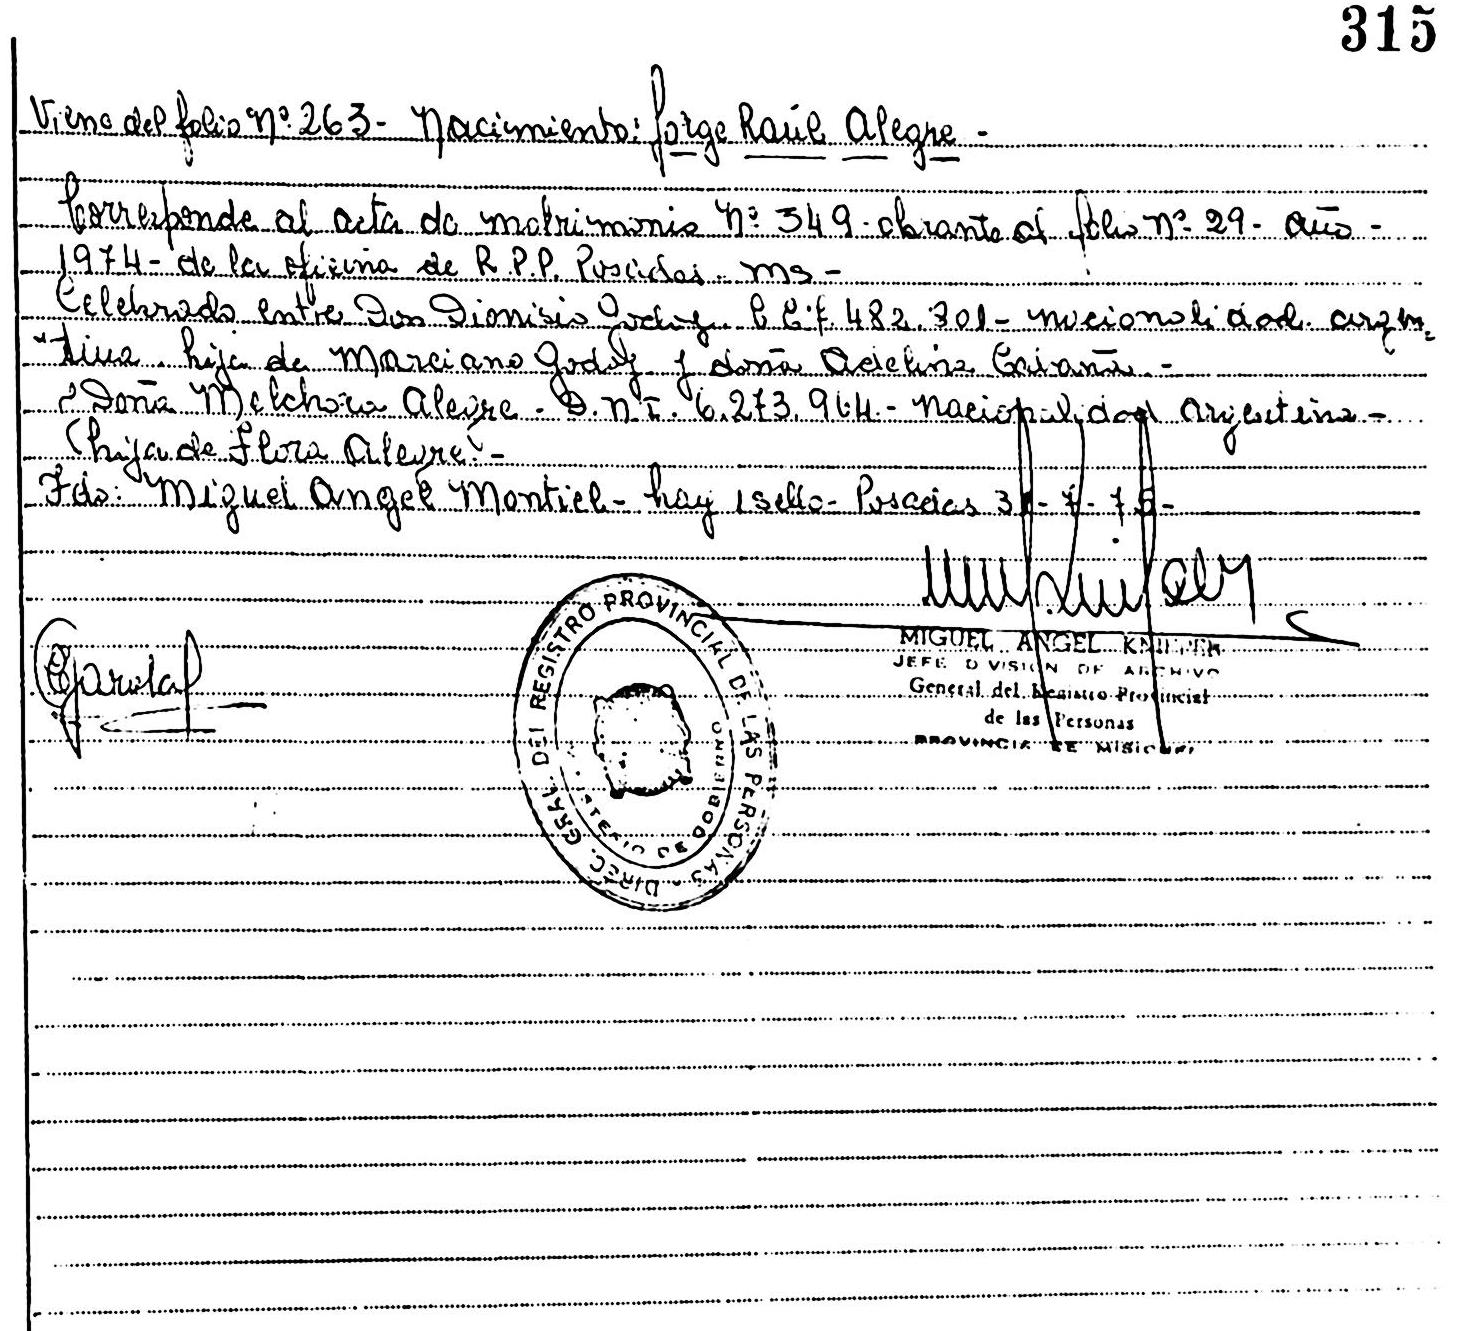 315
Viene del folio Nº 263- Nacimiento: Jorge Raúl Alegre -
Corresponde al acta de matrimonio Nº 349- obrante al folio Nº 29- año -
1974- de la oficina de R.P.P. Posadas. Ms -
Celebrado entre Don Dionisio Godoy 482.301- nacionalidad argen-
tina. hijo de Marciano Godoy y doña Adelina
y Doña Melchora Alegre - D.N.I. 6.273.964- Nacionalidad Argentina -
(hija de Flora Alegre) -
Fdo: Miguel Angel Montiel - hay 1 sello - Posadas 31-7-75-
MIGUEL ANGEL KNIEPER
JEFE DIVISION DE ARCHIVO
General del Registro Provincial
de las Personas
PROVINCIA DE MISIONES
DIREC. GRAL. DEL REGISTRO PROVINCIAL DE LAS PERSONAS -
MINISTERIO DE GOBIERNO